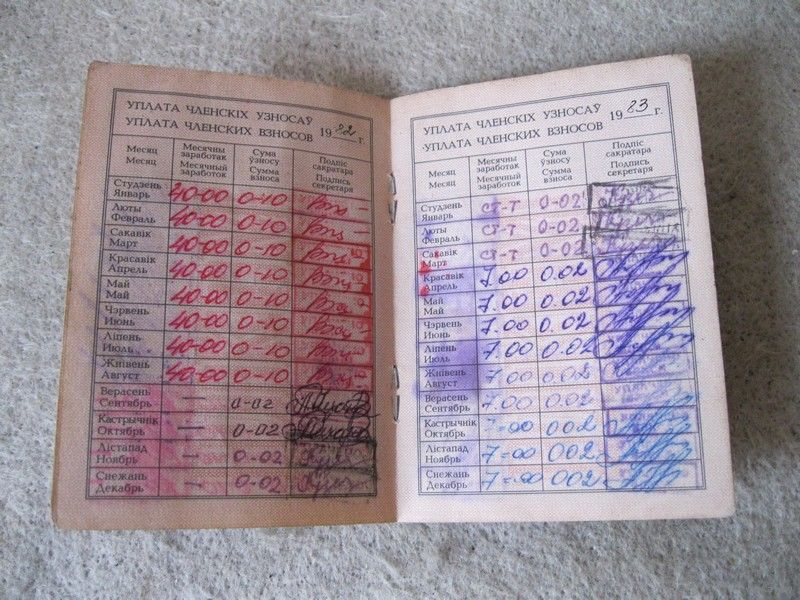 УПЛАТА ЧЛЕНСКІХ УЗНОСАЎ
УПЛАТА ЧЛЕНСКИХ ВЗНОСОВ 1982 г.
Месяц Месячны заработак Сума ўзносу Подпіс сакратара
Месяц Месячный заработок Сумма взноса Подпись секретаря
Студзень Январь 40-00 0-10
Люты Февраль 40-00 0-10
Сакавік Март 40-00 0-10
Красавік Апрель 40-00 0-10
Май Май 40-00 0-10
Чэрвень Июнь 40-00 0-10
Ліпень Июль 40-00 0-10
Жнівень Август 40-00 0-10
Верасень Сентябрь — 0-02
Кастрычнік Октябрь — 0-02
Лістапад Ноябрь — 0-02
Снежань Декабрь — 0-02
УПЛАТА ЧЛЕНСКІХ УЗНОСАЎ
УПЛАТА ЧЛЕНСКИХ ВЗНОСОВ 1983 г.
Месяц Месячны заработак Сума ўзносу Подпіс сакратара
Месяц Месячный заработок Сумма взноса Подпись секретаря
Студзень Январь ст-т 0-02
Люты Февраль ст-т 0-02
Сакавік Март ст-т 0-02
Красавік Апрель 7.00 0.02
Май Май 7.00 0.02
Чэрвень Июнь 7.00 0.02
Ліпень Июль 7.00 0.02
Жнівень Август 7.00 0.02
Верасень Сентябрь 7.00 0.02
Кастрычнік Октябрь 7=00 002
Лістапад Ноябрь 7=00 002
Снежань Декабрь 7=00 002